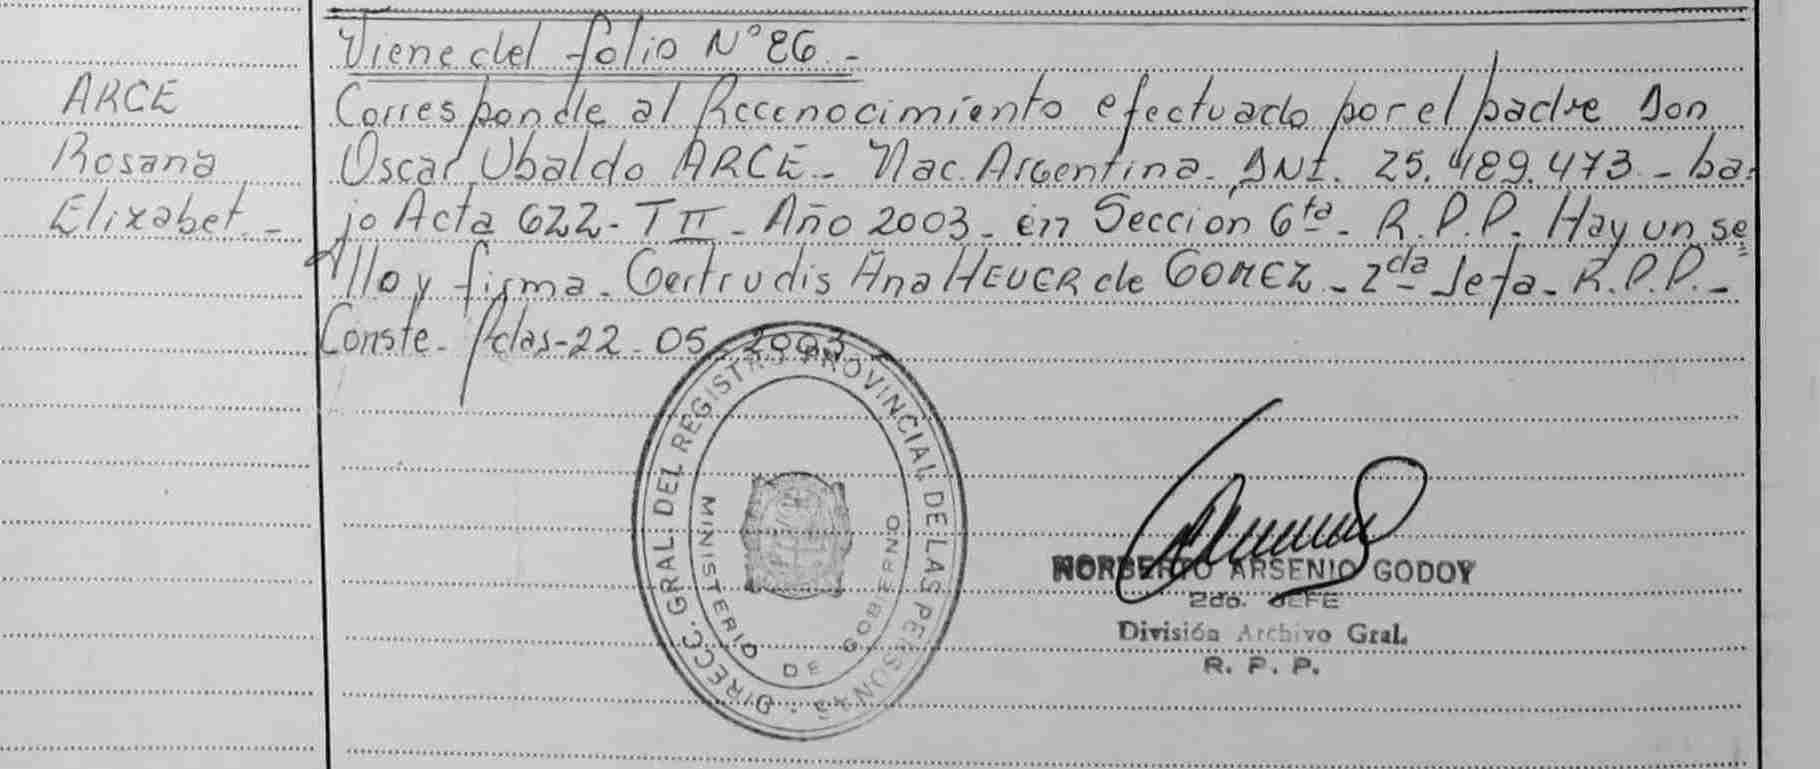 Viene del folio N° 86.-
ARCE
Rosana
Elizabet.-
Corresponde al Reconocimiento efectuado por el padre Don
Oscar Ubaldo ARCE- Nac. Argentina- DNI. 25.489.473- ba-
jo Acta 622- T II- Año 2003- en Sección 6ta- R.P.P. Hay un se
llo y firma- Gertrudis Ana HEUER de GOMEZ- 2da Jefa- R.P.P.-
Conste- Pdas-22-05-2003
DIRECC. GRAL. DEL REGISTRO PROVINCIAL DE LAS PERSONAS
MINISTERIO DE GOBIERNO
NORBERTO ARSENIO GODOY
2do. JEFE
División Archivo Gral.
R. P. P.